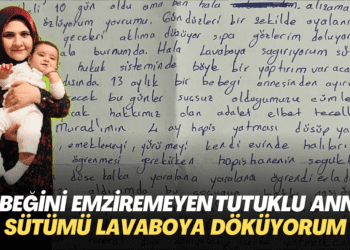 10 gün oldu ama ben hala
özlüyorum yavrumu. Gündüzleri bir şekilde oyalanı
geceleri aklıma düşüyor gözlerim doluyor
burnumda. Hala Lavaboya sağıyorum sü
hukuk sisteminde böyle bir yaptırım var aca
13 aylık bir bebeği annesinden ayır
bu günler suçsuz olduğumuzu
hakkımız olan adalet elbet tecell
Muradımın 4 ay hapis yatması düşüp ya
emeklemeyi, yürümeyi kendi evinde halıları
öğrenmesi gerekirken hapishanenin soğuk
düşe kalka yoralana yoralana öğrendi
BEĞİNİ EMZİREMEYEN TUTUKLU ANN
SÜTÜMÜ LAVABOYA DÖKÜYORUM